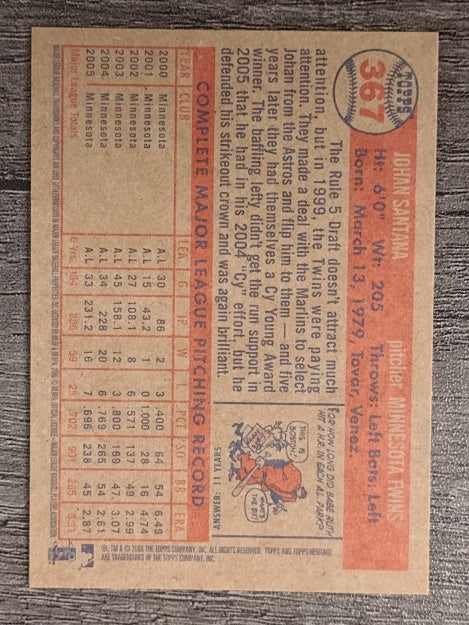 TOPPS
367
JOHAN SANTANA
pitcher MINNESOTA TWINS
Ht: 6'0" Wt: 205 Throws: Left Bats: Left
Born: March 13, 1979, Tovar, Venez.
The Rule 5 Draft doesn't attract much
attention, but in 1999, the Twins were paying
attention. They made a deal with the Marlins to select
Johan from the Astros and flip him to them — and five
years later they had themselves a Cy Young Award
winner. The baffling lefty didn't get the run support in
2005 that he had in his 2004 "Cy" effort, but he
defended his strikeout crown and was again brilliant.
FOR HOW LONG DID BABE RUTH
HIT A H.R. IN EACH A.L. PARK?
THIS IS
BOSTON!
WHAT'S
THE DIF?
ANSWER: 11 YEARS
COMPLETE MAJOR LEAGUE PITCHING RECORD
YEAR CLUB LEA G IP W L PCT SO BB ERA
2000 Minnesota A.L 30 86 2 3 .400 64 54 6.49
2001 Minnesota A.L 15 43.2 1 0 1.000 28 16 4.74
2002 Minnesota A.L 27 108.1 8 6 .571 137 49 2.99
2003 Minnesota A.L 45 158.1 12 3 .800 169 47 3.07
2004 Minnesota A.L 34 228 20 6 .769 265 54 2.61
2005 Minnesota A.L 33 231.2 16 7 .696 238 45 2.87
Major League Totals 6 Yrs. 184 856 59 25 .702 901 265 3.31
®, TM & © 2006 THE TOPPS COMPANY, INC. ALL RIGHTS RESERVED. TOPPS AND TOPPS HERITAGE
ARE TRADEMARKS OF THE TOPPS COMPANY, INC.